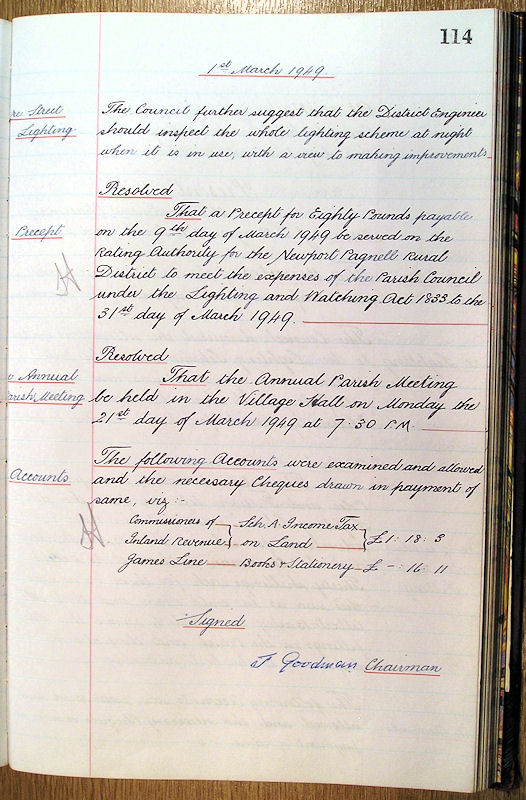 114
1st March 1949
re Street
Lighting
The Council further suggest that the District Engineer
should inspect the whole lighting scheme at night
when it is in use, with a view to making improvements
Resolved
Precept
That a Precept for Eighty Pounds payable
on the 9th day of March 1949 be served on the
Rating Authority for the Newport Pagnell Rural
District to meet the expenses of the Parish Council
under the Lighting and Watching Act 1833 to the
31st day of March 1949.
Resolved
Annual
Parish Meeting
That the Annual Parish Meeting
be held in the Village Hall on Monday the
21st day of March 1949 at 7.30 P.M.
Accounts
The following Accounts were examined and allowed
and the necessary Cheques drawn in payment of
same, viz:-
Commissioners of } Sch. A. Income Tax }
Inland Revenue } on Land } £1: 18: 3
James Line Books & Stationery £ -: 16: 11
Signed
F Goodman Chairman